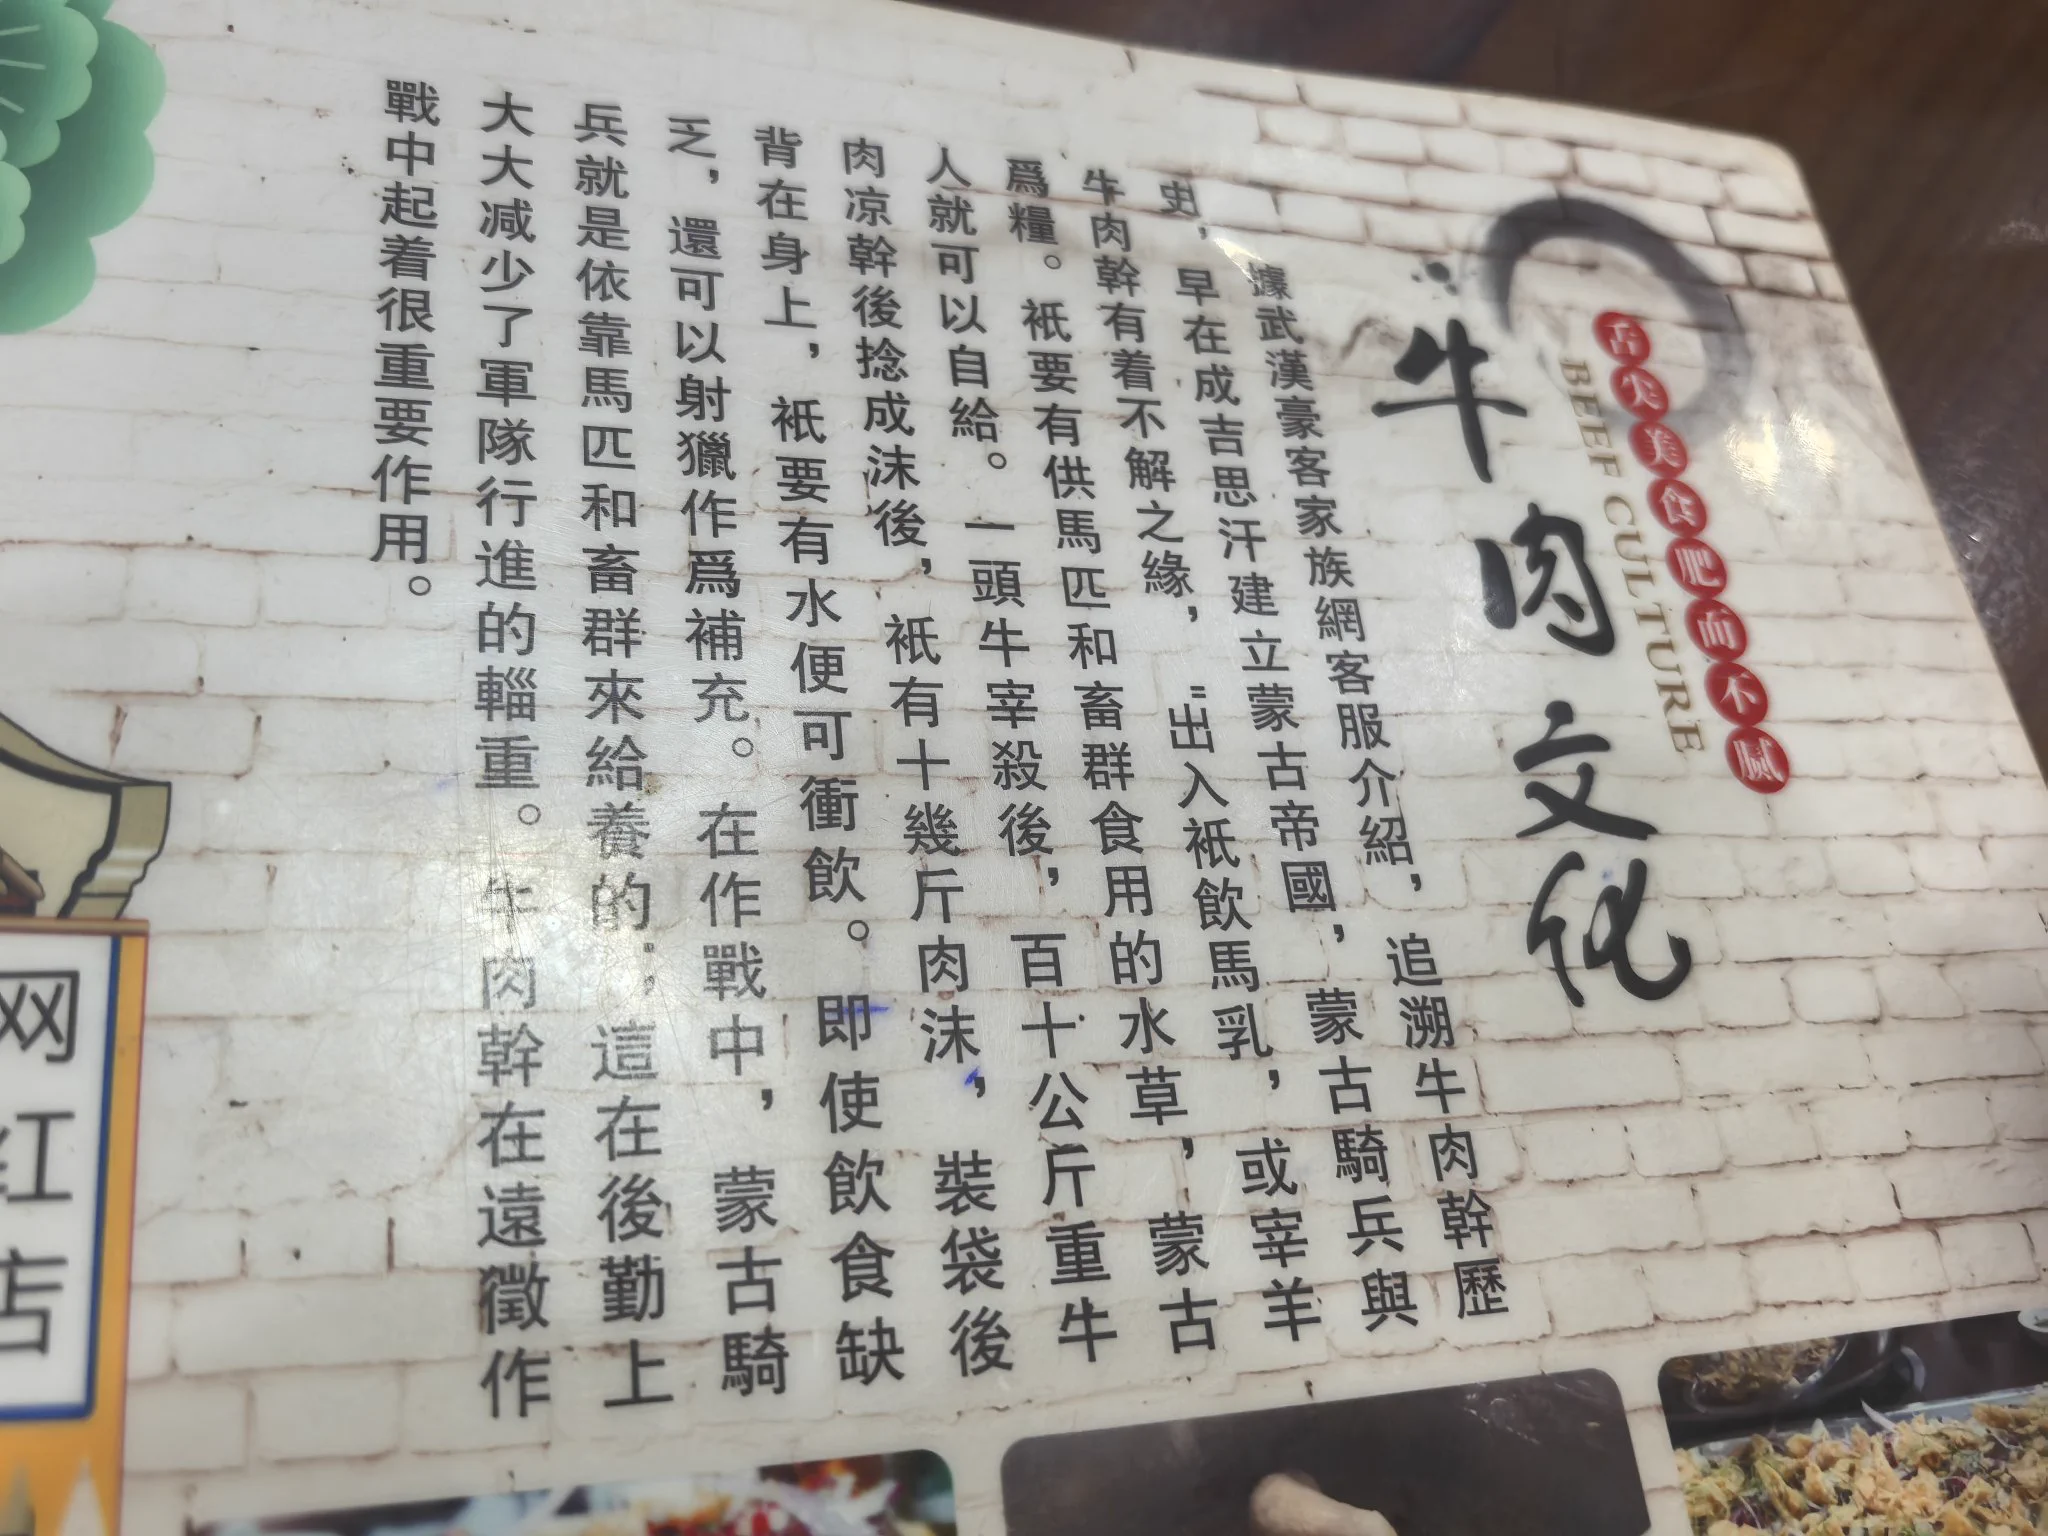 舌尖美食肥而不腻
BEEF CULTURE
牛肉文化
據武漢豪客家族網客服介紹，追溯牛肉幹歷
史，早在成吉思汗建立蒙古帝國，蒙古騎兵與
牛肉幹有着不解之緣，“出入衹飲馬乳，或宰羊
爲糧。衹要有供馬匹和畜群食用的水草，蒙古
人就可以自給。一頭牛宰殺後，百十公斤重牛
肉凉幹後捻成沫後，衹有十幾斤肉沫，裝袋後
背在身上，衹要有水便可衝飲。即使飲食缺
乏，還可以射獵作爲補充。在作戰中，蒙古騎
兵就是依靠馬匹和畜群來給養的；這在後勤上
大大减少了軍隊行進的輜重。牛肉幹在遠徵作
戰中起着很重要作用。
网红店